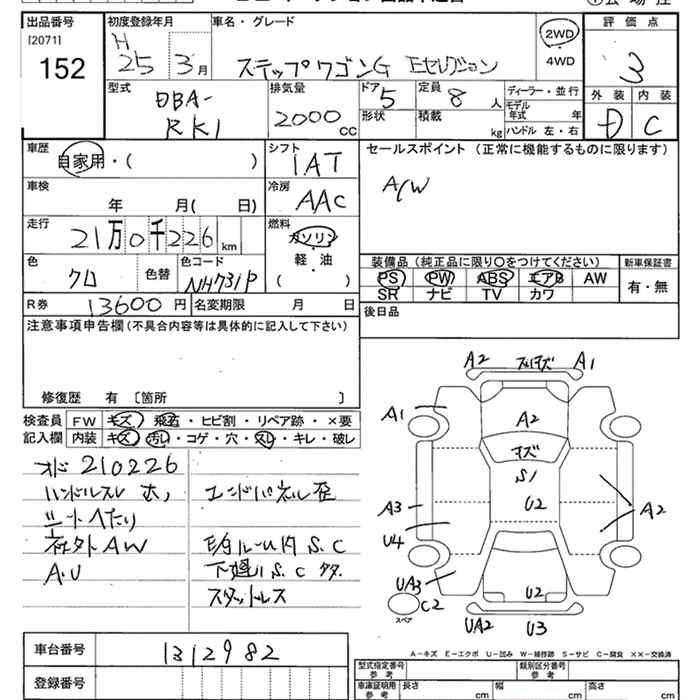 出品番号 初度登録年月 車名・グレード 2WD 評価点
[2071] H 25 3月 ステップワゴンG Eセレクション 4WD 3
152
型式 排気量 ドア 5 定員 8 人 ディーラー・並行 外装 内装
DBA- 2000 cc 形状 積載 kg モデル年式 年 D C
RK1 ハンドル 左・右
車歴 シフト セールスポイント (正常に機能するものに限ります)
自家用・( ) IAT A/W
車検 冷房
年 月( 日) AAC
走行 燃料
21万0千226km ガソリン
軽・油
( )
色 色替 色コード 装備品 (純正品に限り○をつけてください) 新車保証書
クロ NH731P PS PW ABS エアB AW 有・無
SR ナビ TV カワ
R券 13600円 名変期限 月 日 後日品
注意事項申告欄 (不具合内容等は具体的に記入して下さい)
修復歴 有 [箇所 ]
検査員 FW キズ 飛石・ヒビ割・リペア跡・×要
記入欄 内装 キズ 汚れ・コゲ・穴・スレ・キレ・破レ
オド 210226
ハンドルスレ ホ, エンドパネル歪
シートヘたり
社外AW
A.U 下廻り S.C タタ.
スタットレス
A2 A1
A1 A2
キズ
S1
U2
A3 A2
U4
UA3
C2 U2
スペア
UA2 U3
A-キズ E-エクボ U-凹み W-補修跡 S-サビ C-腐食 ××-交換済
車台番号 1312982
登録番号
型式指定番号 参考 類別区分番号 参考
車庫証明用 参考 長さ cm 幅 cm 高さ cm